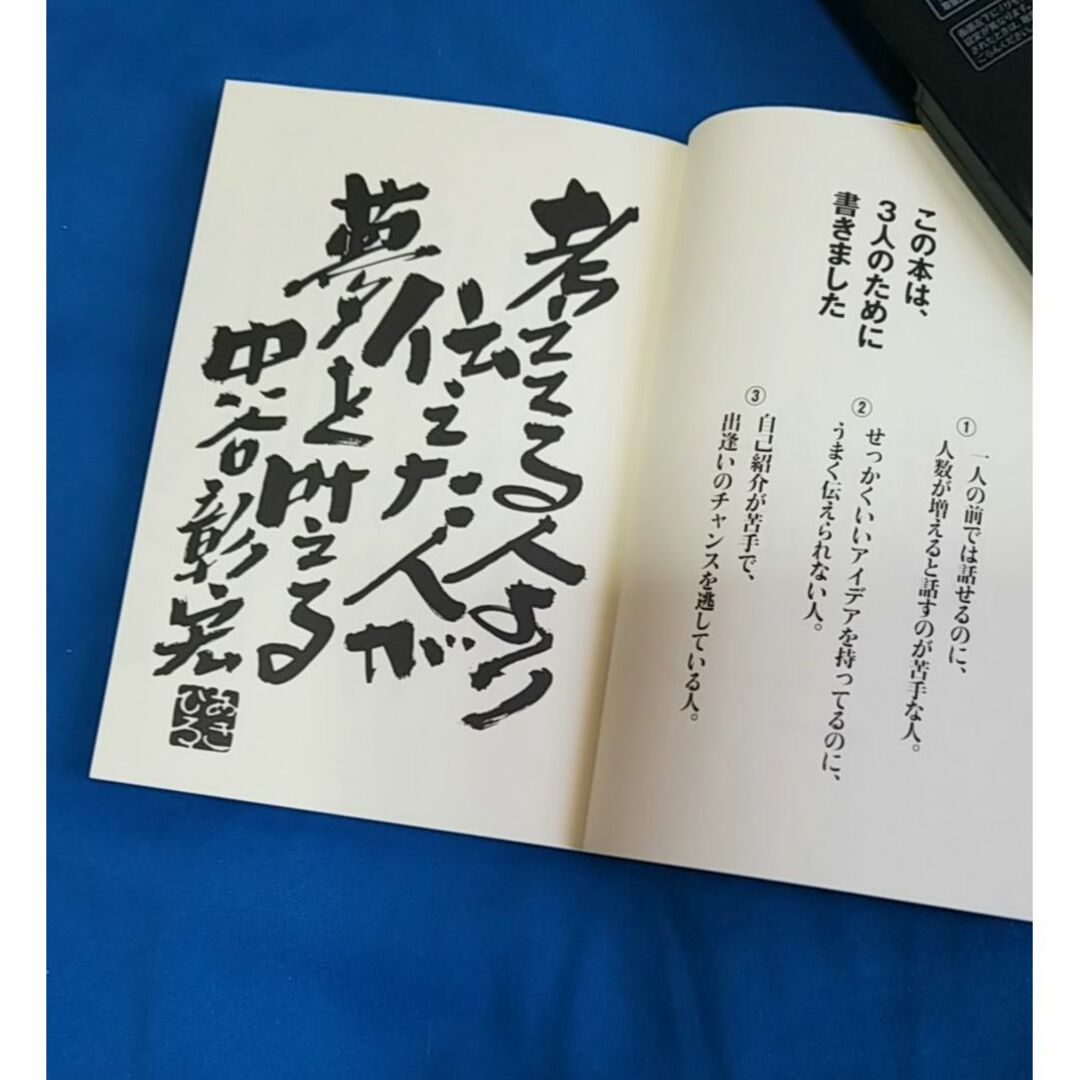 この本は、
3人のために
書きました
① 一人の前では話せるのに、
人数が増えると話すのが苦手な人。
② せっかくいいアイデアを持ってるのに、
うまく伝えられない人。
③ 自己紹介が苦手で、
出逢いのチャンスを逃している人。
考えてる人より
伝えた人が
夢を叶える
中谷彰宏
あき
ひろ